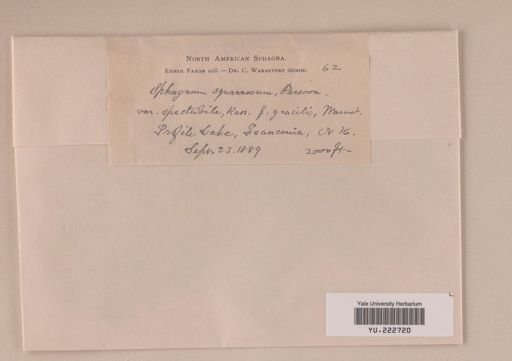 North American Sphagna.
Edwin Faxon coll. — Dr. C. Warnstorf determ. 62
Sphagnum squarrosum, Persoon.
var. spectabile, Russ. f. gracilis, Warnst.
Profile Lake, Franconia, N H.
Sept. 23. 1889 2000 ft-
Yale University Herbarium
YU-222720